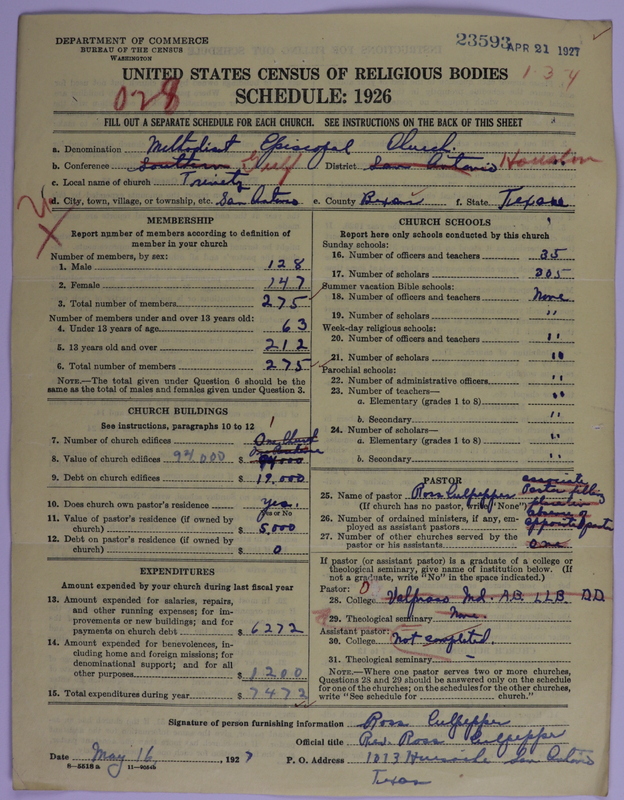 DEPARTMENT OF COMMERCE
BUREAU OF THE CENSUS
WASHINGTON
23593 APR 21 1927
UNITED STATES CENSUS OF RELIGIOUS BODIES
1 3 4
028
SCHEDULE: 1926
FILL OUT A SEPARATE SCHEDULE FOR EACH CHURCH. SEE INSTRUCTIONS ON THE BACK OF THIS SHEET
a. Denomination Methodist Episcopal Church.
b. Conference Southern Gulf District San Antonio Houston
c. Local name of church Trinity
d. City, town, village, or township, etc. San Antonio e. County Bexar f. State Texas
MEMBERSHIP
Report number of members according to definition of
member in your church
Number of members, by sex:
1. Male 128
2. Female 147
3. Total number of members 275
Number of members under and over 13 years old:
4. Under 13 years of age 63
5. 13 years old and over 212
6. Total number of members 275
NOTE.—The total given under Question 6 should be the
same as the total of males and females given under Question 3.
CHURCH BUILDINGS
See instructions, paragraphs 10 to 12
7. Number of church edifices One Church
8. Value of church edifices 94.000 $
9. Debt on church edifices $ 19.000
10. Does church own pastor's residence Yes.
Yes or No
11. Value of pastor's residence (if owned by
church) $ 5.000
12. Debt on pastor's residence (if owned by
church) $ 0
EXPENDITURES
Amount expended by your church during last fiscal year
13. Amount expended for salaries, repairs,
and other running expenses; for im-
provements or new buildings; and for
payments on church debt $ 6272
14. Amount expended for benevolences, in-
cluding home and foreign missions; for
denominational support; and for all
other purposes $ 1200
15. Total expenditures during year $ 7472
CHURCH SCHOOLS
Report here only schools conducted by this church
Sunday schools:
16. Number of officers and teachers 35
17. Number of scholars 305
Summer vacation Bible schools:
18. Number of officers and teachers None
19. Number of scholars "
Week-day religious schools:
20. Number of officers and teachers "
21. Number of scholars "
Parochial schools:
22. Number of administrative officers "
23. Number of teachers—
a. Elementary (grades 1 to 8) "
b. Secondary "
24. Number of scholars—
a. Elementary (grades 1 to 8) "
b. Secondary "
PASTOR
25. Name of pastor Ross Culpepper associate Pastor filling
(If church has no pastor, write "None")
26. Number of ordained ministers, if any, em-
ployed as assistant pastors
27. Number of other churches served by the
pastor or his assistants one
If pastor (or assistant pastor) is a graduate of a college or
theological seminary, give name of institution below. (If
not a graduate, write "No" in the space indicated.)
Pastor: 0
28. College Valpraso Ind. A.B. L.L.B. D.D.
29. Theological seminary None
Assistant pastor:
30. College Not completed.
31. Theological seminary –
NOTE.—Where one pastor serves two or more churches,
Questions 28 and 29 should be answered only on the schedule
for one of the churches; on the schedules for the other churches,
write "See schedule for church."
Signature of person furnishing information Ross Culpepper
Official title Rev. Ross Culpepper
Date May 16, 1927 P. O. Address 1013 San Antonio
Texas
8—5518 a 11—9054b